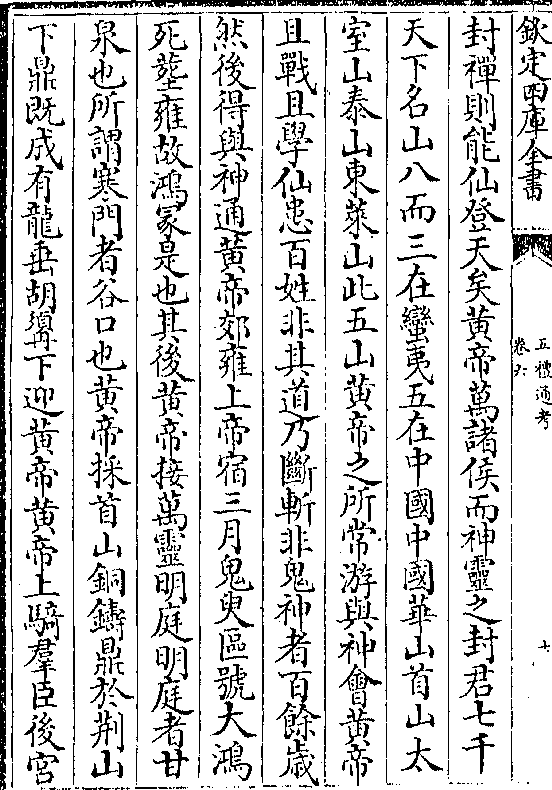 欽定四庫全書
五禮通考
卷六
七
封禪則能仙登天矣黄帝萬諸侯而神靈之封君七千
天下名山八而三在蠻夷五在中國中國華山首山太
室山泰山東萊山此五山黄帝之所常游與神會黄帝
且戰且學仙患百姓非其道乃斷斬非鬼神者百餘歲
然後得與神通黄帝郊雍上帝宿三月鬼臾區號大鴻
死塟雍故鴻冢是也其後黄帝接萬靈明庭明庭者甘
泉也所謂寒門者谷口也黄帝採首山銅鑄鼎於荆山
下鼎既成有龍垂胡髯下迎黄帝黄帝上騎羣臣後宫